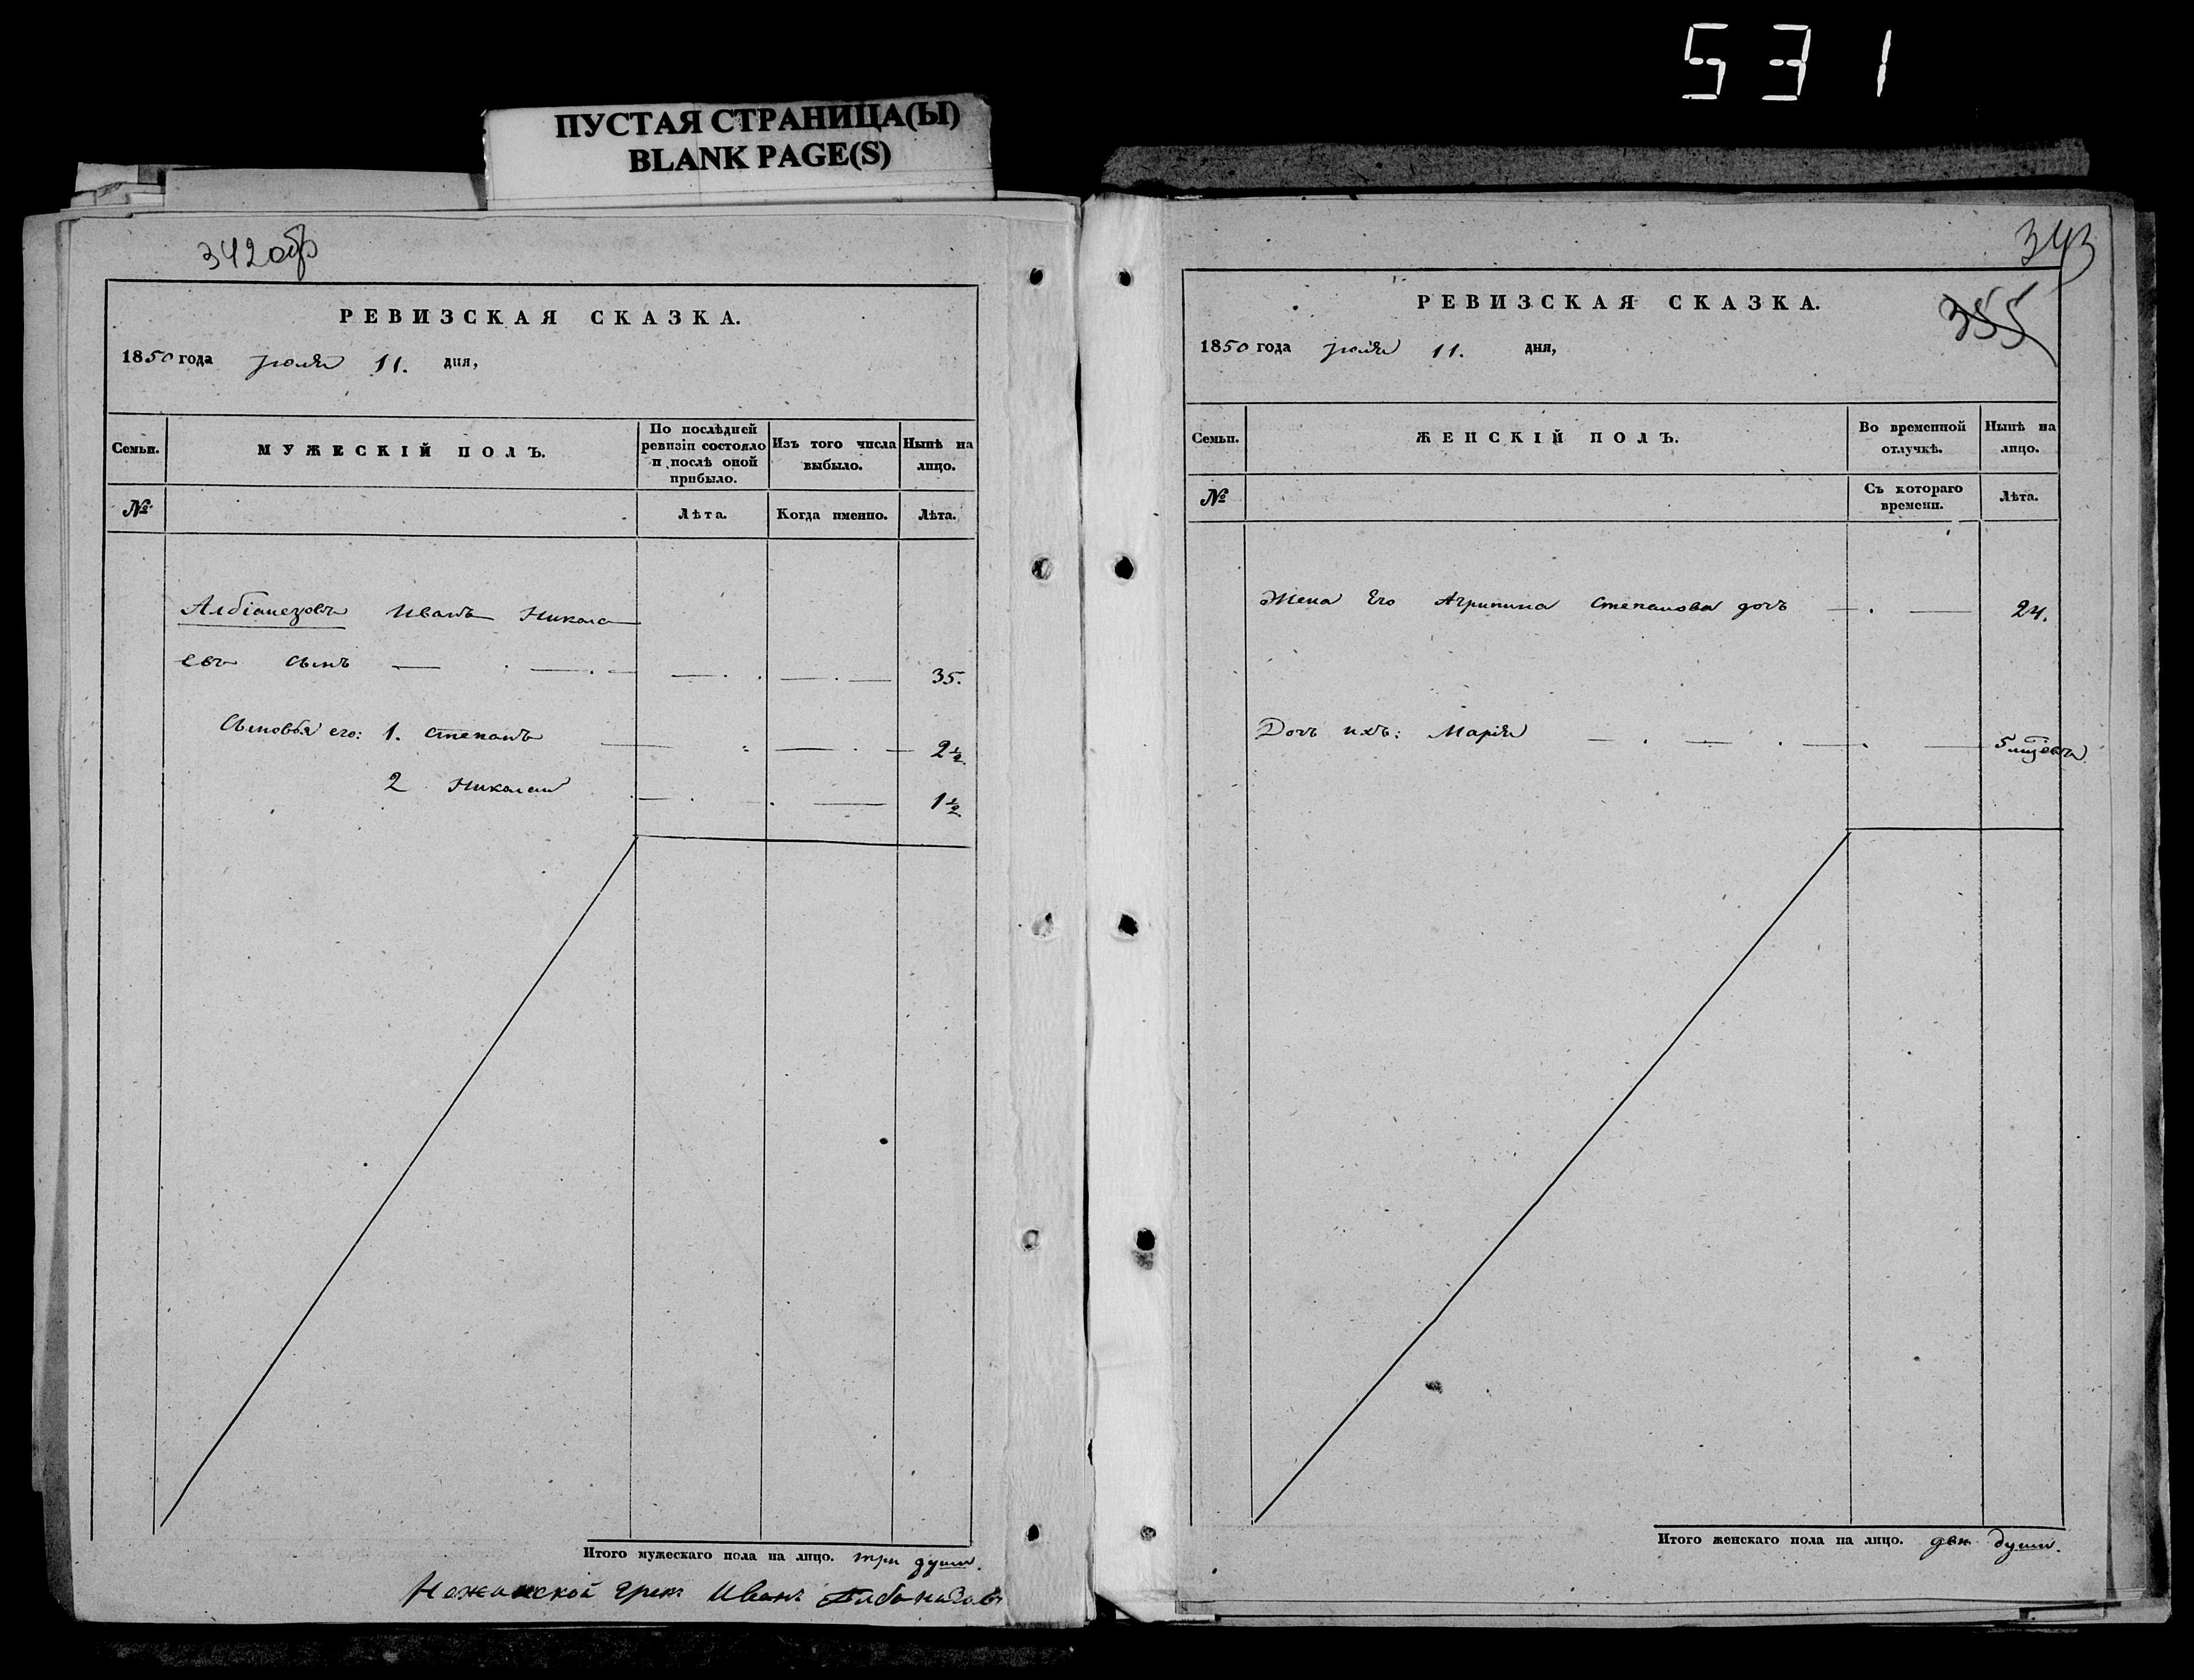 531
ПУСТАЯ СТРАНИЦА(Ы)
BLANK PAGE(S)
342 об
РЕВИЗСКАЯ СКАЗКА.
1850 года июля 11. дня,
Семьи.
МУЖЕСКІЙ ПОЛЪ.
По послѣдней ревизіи состояло и послѣ оной прибыло.
Изъ того числа выбыло.
Нынѣ на лицо.
№
Лѣта.
Когда именно.
Лѣта.
Албіанезовъ Иванъ Никола
евъ сынъ 35.
Сыновья его: 1. Степанъ 2½
2 Николай 1½
Итого мужескаго пола на лицо. три души.
Нежинской грек Иванъ
343
355
РЕВИЗСКАЯ СКАЗКА.
1850 года июля 11. дня,
Семьи.
ЖЕНСКІЙ ПОЛЪ.
Во временной отлучкѣ.
Нынѣ на лицо.
№
Съ котораго времени.
Лѣта.
Жена Его Агрипина Степанова дочь 24.
Дочь ихъ: Марія 5 мцевъ
Итого женскаго пола на лицо. две души.